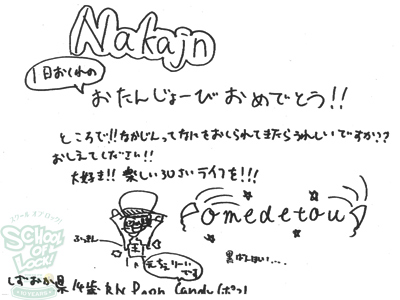 Nakajn
1日おくれの
おたんじょーびおめでとう!!
ところで!!なかじんってなにをおくられてきたらうれしいですか??
おしえてください!!
大好き!!楽しい30さいライフを!!!
omedetou
スクールオブロック!
SCHOOL
OF
LOCK!
しずおか県 14歳 RN Poon Candy